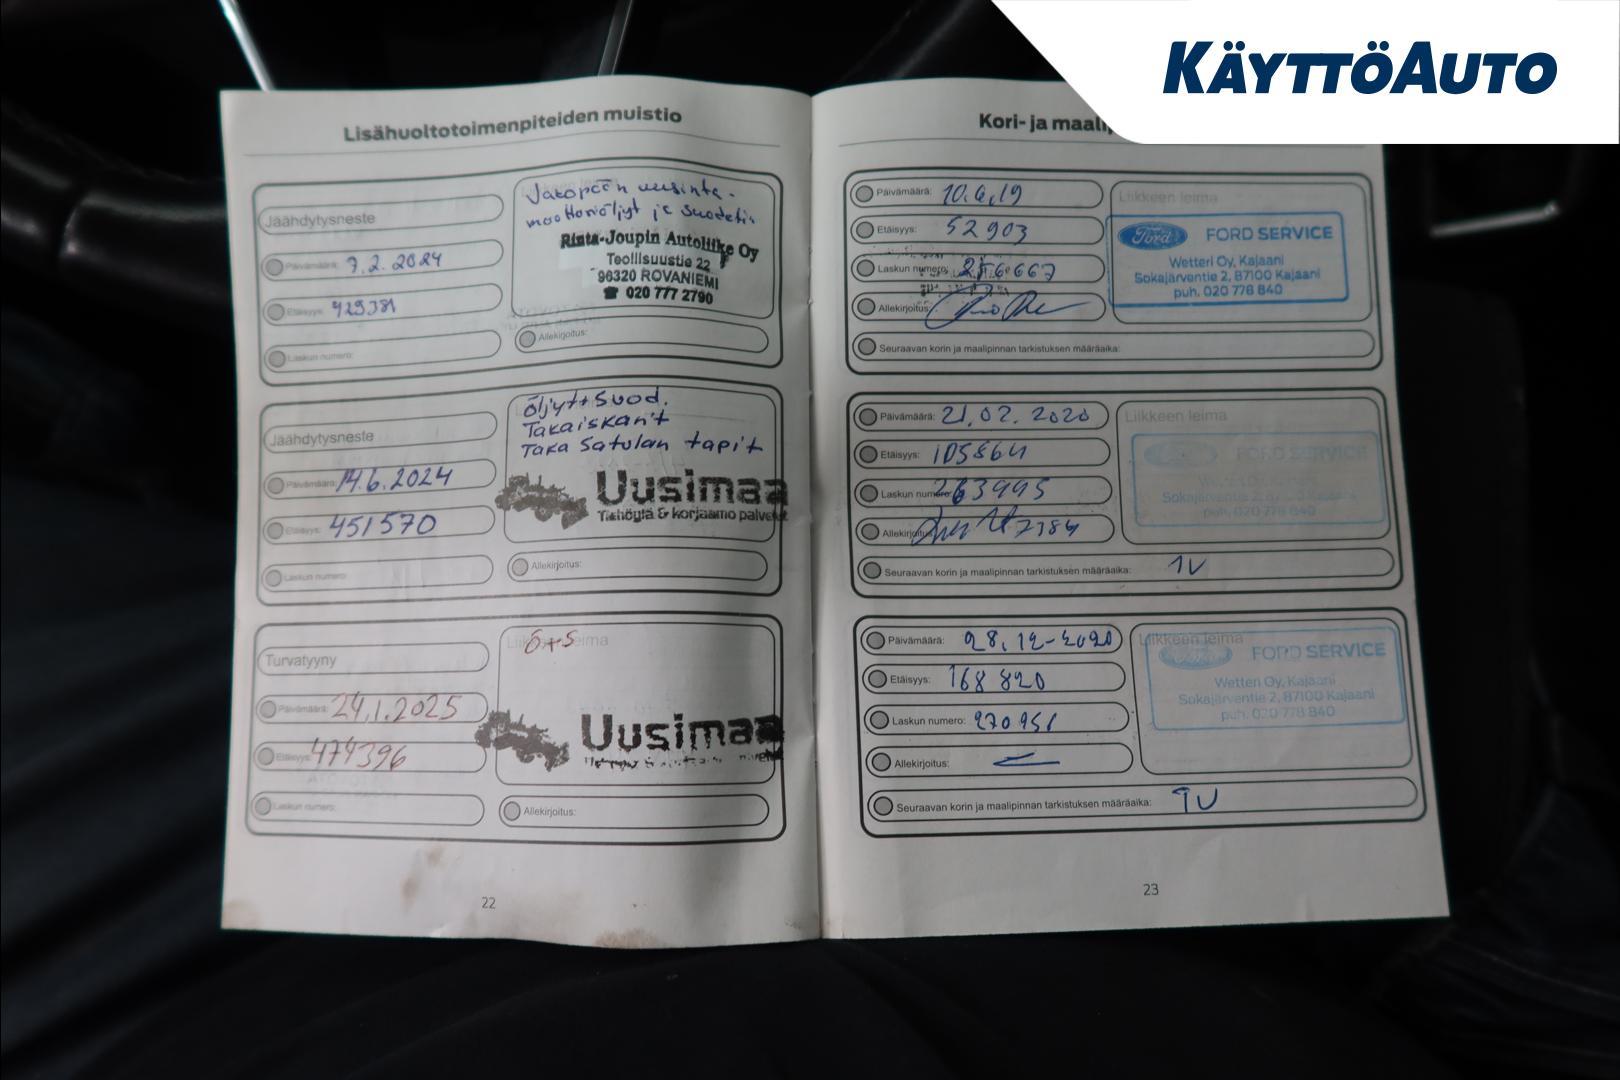 KÄYTTÖAUTO
Lisähuoltotoimenpiteiden muistio
Jäähdytysneste
Päivämäärä: 7.2.2024
Etäisyys: 429381
Laskun numero:
Jakopään uusinta -
moottoriöljyt ja suodatin
Rinta-Joupin Autoliike Oy
Teollisuustie 22
96320 ROVANIEMI
☎ 020 777 2790
Allekirjoitus:
Jäähdytysneste
Päivämäärä: 14.6.2024
Etäisyys: 451570
Laskun numero:
öljyt+suod.
Takaiskarit
Taka Satulan tapit
Uusimaa
Tiehöylä & korjaamo palvelut
Allekirjoitus:
Turvatyyny
Päivämäärä: 24.1.2025
Etäisyys: 474396
Laskun numero:
Liikkeen leima
ö+s
Uusimaa
Allekirjoitus:
22
Kori- ja
Päivämäärä: 10.4.19
Etäisyys: 52903
Laskun numero: 256667
Allekirjoitus:
Liikkeen leima
Ford FORD SERVICE
Wetteri Oy, Kajaani
Sokajärventie 2, 87100 Kajaani
puh. 020 778 840
Seuraavan korin ja maalipinnan tarkistuksen määräaika:
Päivämäärä: 21.02.2020
Etäisyys: 105864
Laskun numero: 263995
Allekirjoitus: 7184
Liikkeen leima
FORD SERVICE
Wetteri Oy, Kajaani
Sokajärventie 2, 87100 Kajaani
puh. 020 778 840
Seuraavan korin ja maalipinnan tarkistuksen määräaika: 1V
Päivämäärä: 28.12-2020
Etäisyys: 168 820
Laskun numero: 270951
Allekirjoitus:
Liikkeen leima
Ford FORD SERVICE
Wetteri Oy, Kajaani
Sokajärventie 2, 87100 Kajaani
puh. 020 778 840
Seuraavan korin ja maalipinnan tarkistuksen määräaika: 1V
23